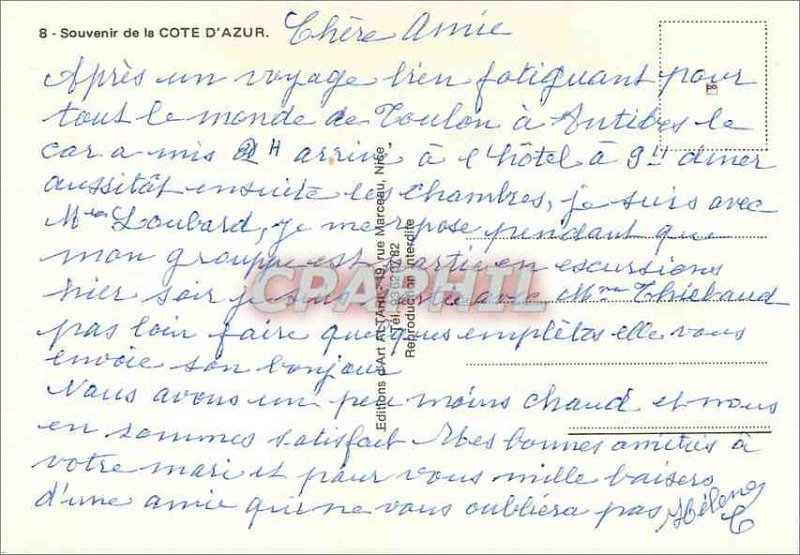 8 - Souvenir de la COTE D'AZUR. Chère Amie
Après un voyage bien fatiguant pour
tout le monde de Toulon à Antibes le
car a mis 2 H arrivé à l'hôtel à 9H diner
aussitôt ensuite les chambres, je suis avec
Mme Loubard, je me repose pendant que
mon groupe est partie en escursions
hier soir je suis avec Mme Thiebaud
pas loin faire quelques emplètes elle vous
envoie son bonjour
Nous avons un peu moins chaud et nous
en sommes satisfait Mes bonnes amitiés à
votre mari et pour vous mille baisers
d'une amie qui ne vous oubliera pas Hélène
Editions d'Art ALTARI - 19, rue Marceau, Nice
Tél.
Reproduction interdite
CPAPHIL